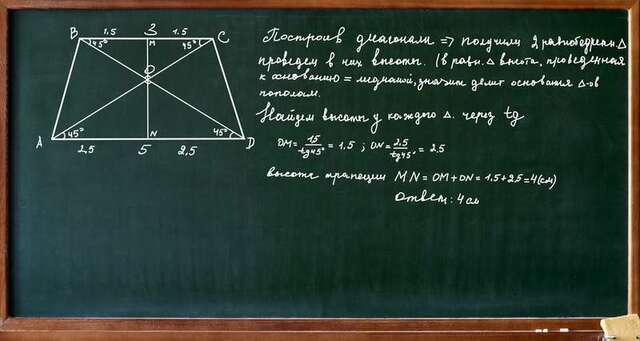 1,5 3 1.5
B M C
45° 45°
O
A 45° N 45° D
2,5 5 2,5
Построив диагонали => получили 2 равнобедрен. Δ
проведем в них высоты. (В равн. Δ высота, проведенная
к основанию = медианой, значит делит основания Δ-ов
пополам.
Найдем высоты у каждого Δ. через tg
OM = 1,5 / tg 45° = 1,5 ; ON = 2.5 / tg 45° = 2.5
высота трапеции MN = OM + ON = 1.5 + 2.5 = 4 (см)
Ответ: 4 см